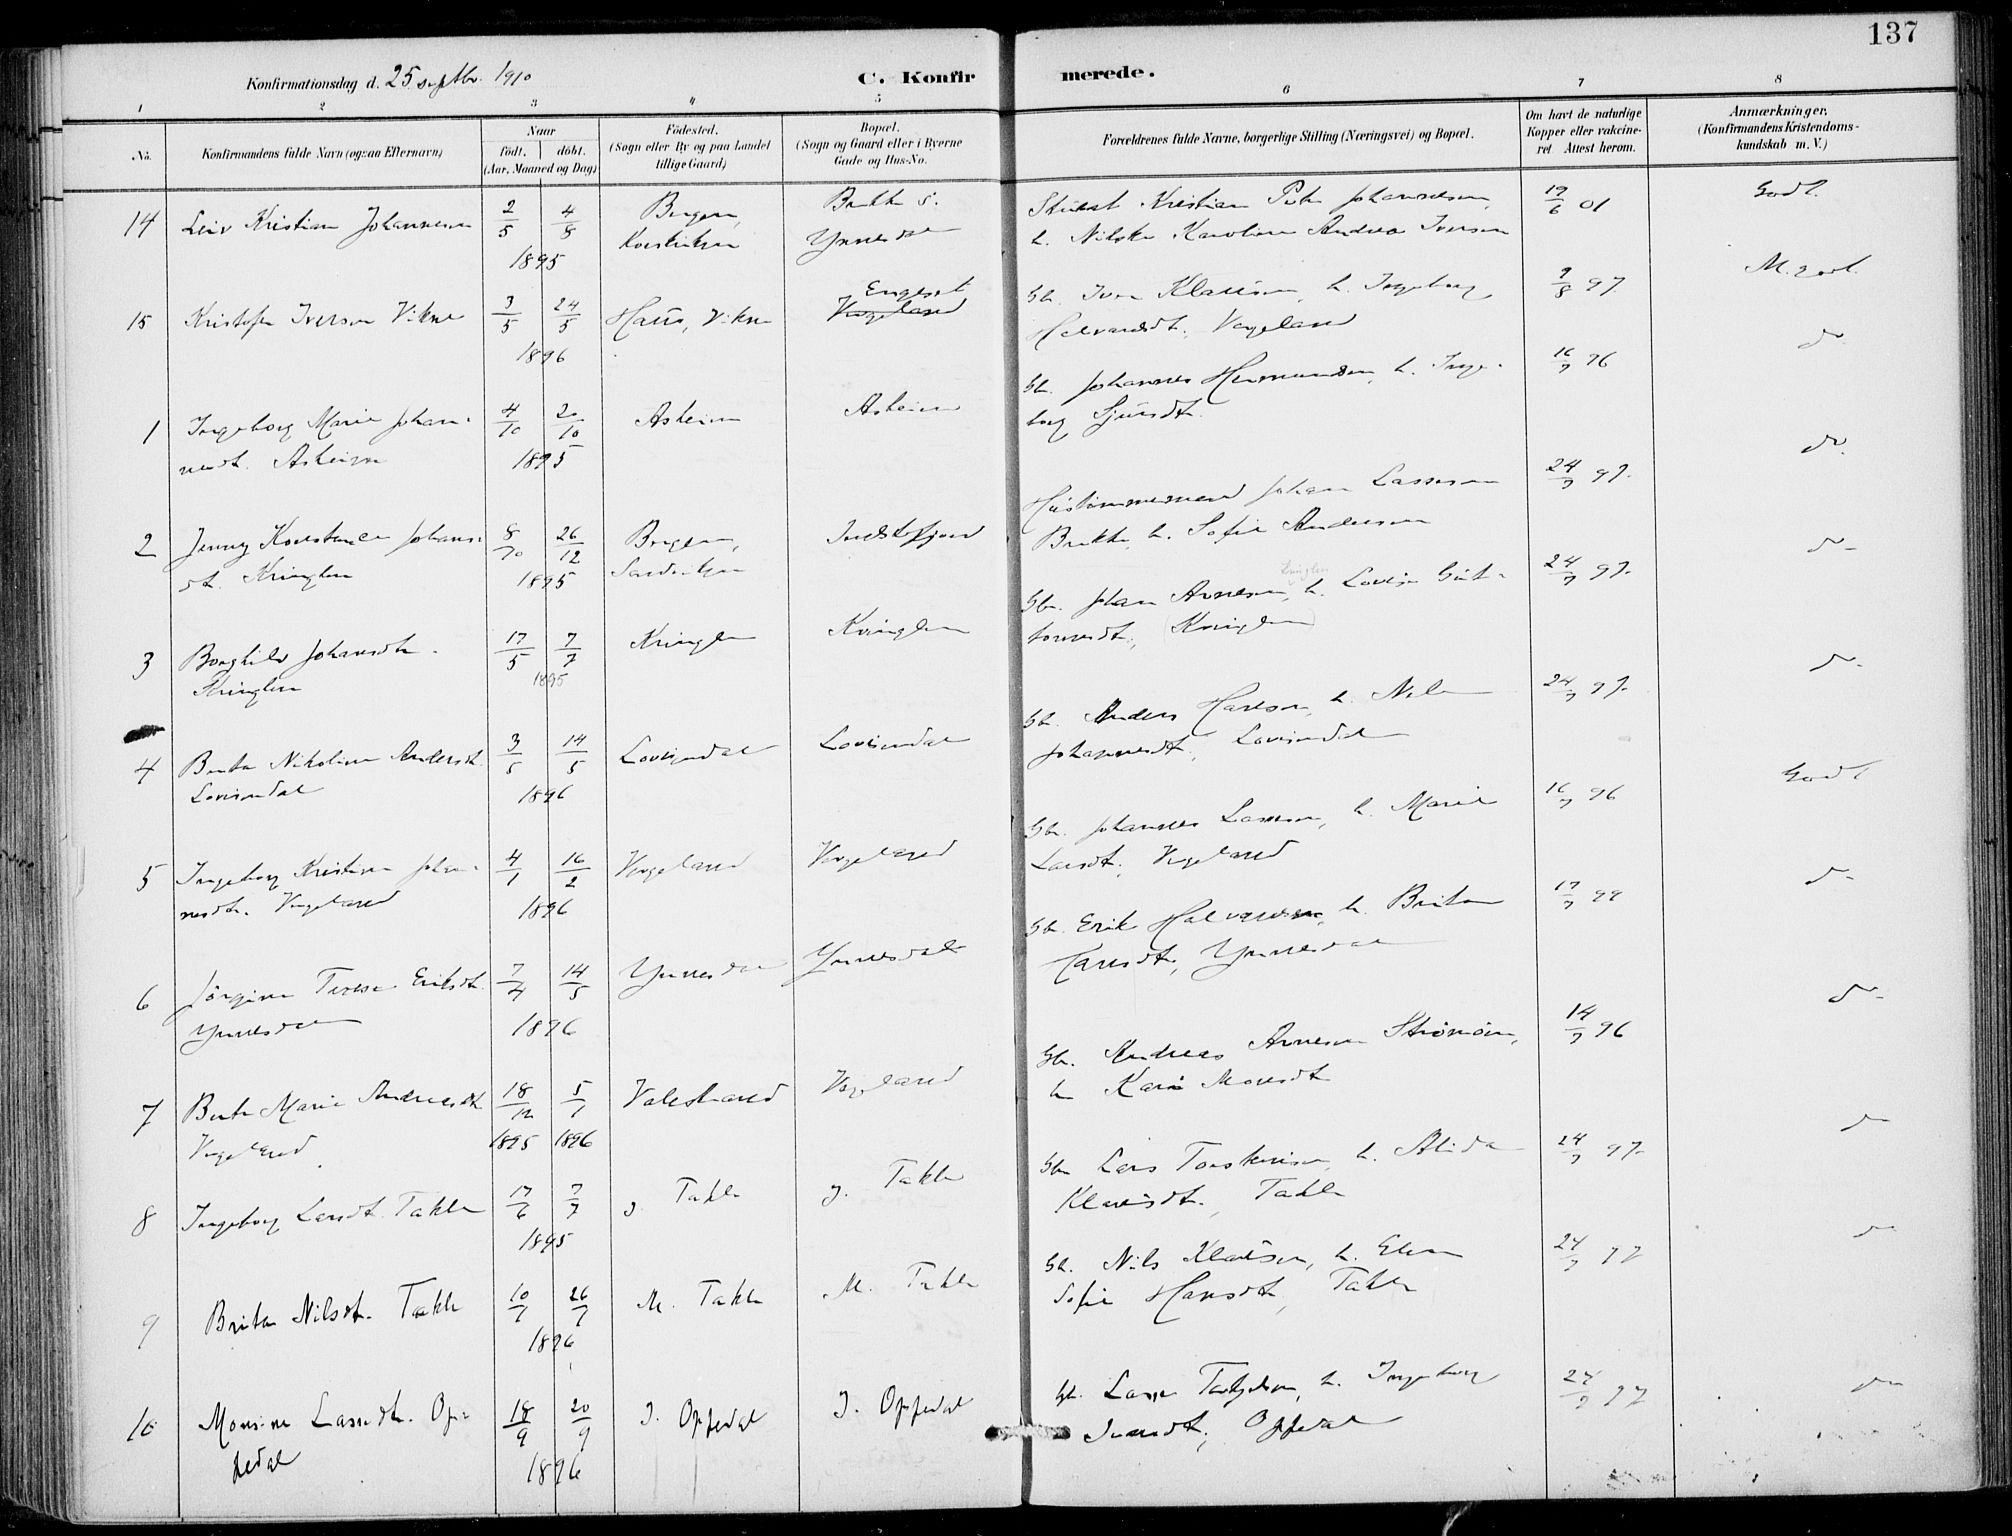 137
Konfirmationsdag d. 25 septbr. 1910
C. Konfirmerede.
1 2 3 4 5 6 7 8
No.
Konfirmandens fulde Navn (ogsaa Efternavn)
Naar
født. døbt.
(Aar, Maaned og Dag)
Fødested.
(Sogn eller By og paa Landet
tillige Gaard)
Bopæl.
(Sogn og Gaard eller i Byerne
Gade og Hus-No.
Forældrenes fulde Navne, borgerlige Stilling (Næringsvei) og Bopæl.
Om havt de naturlige
Kopper eller vakcine-
ret Attest herom.
Anmærkninger.
(Konfirmandens Kristendoms-
kundskab m. V.)
14 Leiv Kristian Johannesen 2/5 4/8 Bergen, Brekke s. Kristian Peter Johannesen, 19/6 01 Godt.
Korskirken Ynnesdal h. Nilske Karoline Andrea Iversen
1895
15 Kristofer Iverson Vikne 3/5 24/5 Haus, Vikne Engeset Vengeland Gbr. Iver Klausen, h. Ingeborg 9/8 97 M. godt.
1896 Halvardsdt. Vengeland
1 Ingeborg Marie Johan- 4/10 20/10 Asheim Asheim Gbr. Johannes Hermundsen, h. Inge- 16/7 96 do
nesdt. Asheim 1895 borg Sjursdt.
2 Jenny Konstance Johans- 8/10 26/12 Bergen, Indrefjord Hustømmermand Johan Lassesen 24/7 97. do.
dt. Kringlen 1895 Sandviken Brekke, h. Sofie Andersen
3 Borghild Johansdt. 17/5 7/7 Kringlen Kringlen Gbr. Johan Arnesen, h. Lovise Gut- 24/7 97. do
Kringlen 1895 tormsdt., Kringlen
4 Berta Nikoline Andersdt. 3/5 14/5 Lovisendal Lovisendal Gbr. Anders Hansen, h. Nele 24/7 97. do
Lovisendal 1896 Johannesdt., Lovisendal
5 Ingeborg Kristine Johan- 4/1 16/2 Vengeland Vengeland Gbr. Johannes Lassesen, h. Marie 16/7 96 Godt
nesdt. Vengeland 1896 Larsdt. Vengeland
6 Jørgine Terese Eriksdt. 7/4 14/5 Ynnesdal Ynnesdal Gbr. Erik Halvardsen, h. Brita 17/7 99 do
Ynnesdal 1896 Hansdt., Ynnesdal
7 Berte Marie Andreasdt. 18/12 5/1 Valestrand Vengeland Gbr. Andreas Arnesen Strømøen, 14/7 96 do
Vengeland 1895 1896 h. Kari Monsdt
8 Ingeborg Larsdt. Takle 17/6 7/7 y. Takle y. Takle Gbr. Lars Torstensen, h. Alida 24/7 97. do
1895 Klausdt., Takle
9 Brita Nilsdt. Takle 10/7 26/7 M. Takle M. Takle Gbr. Nils Klausen, h. Elen 24/7 97 do
1896 Sofie Hansdt, Takle
10 Monsine Lassedt. Op- 18/9 20/9 I. Oppedal I. Oppedal Gbr. Lasse h. Ingeborg 24/7 97 do
pedal 1896 Ivarsdt., Oppedal